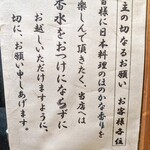 主の切なるお願い　お客様各位
皆様に日本料理のほのかな香りを
楽しんで頂きたく、当店へは
香水をおつけにならずに
お越しいただけますように、
切に、お願い申しあげます。